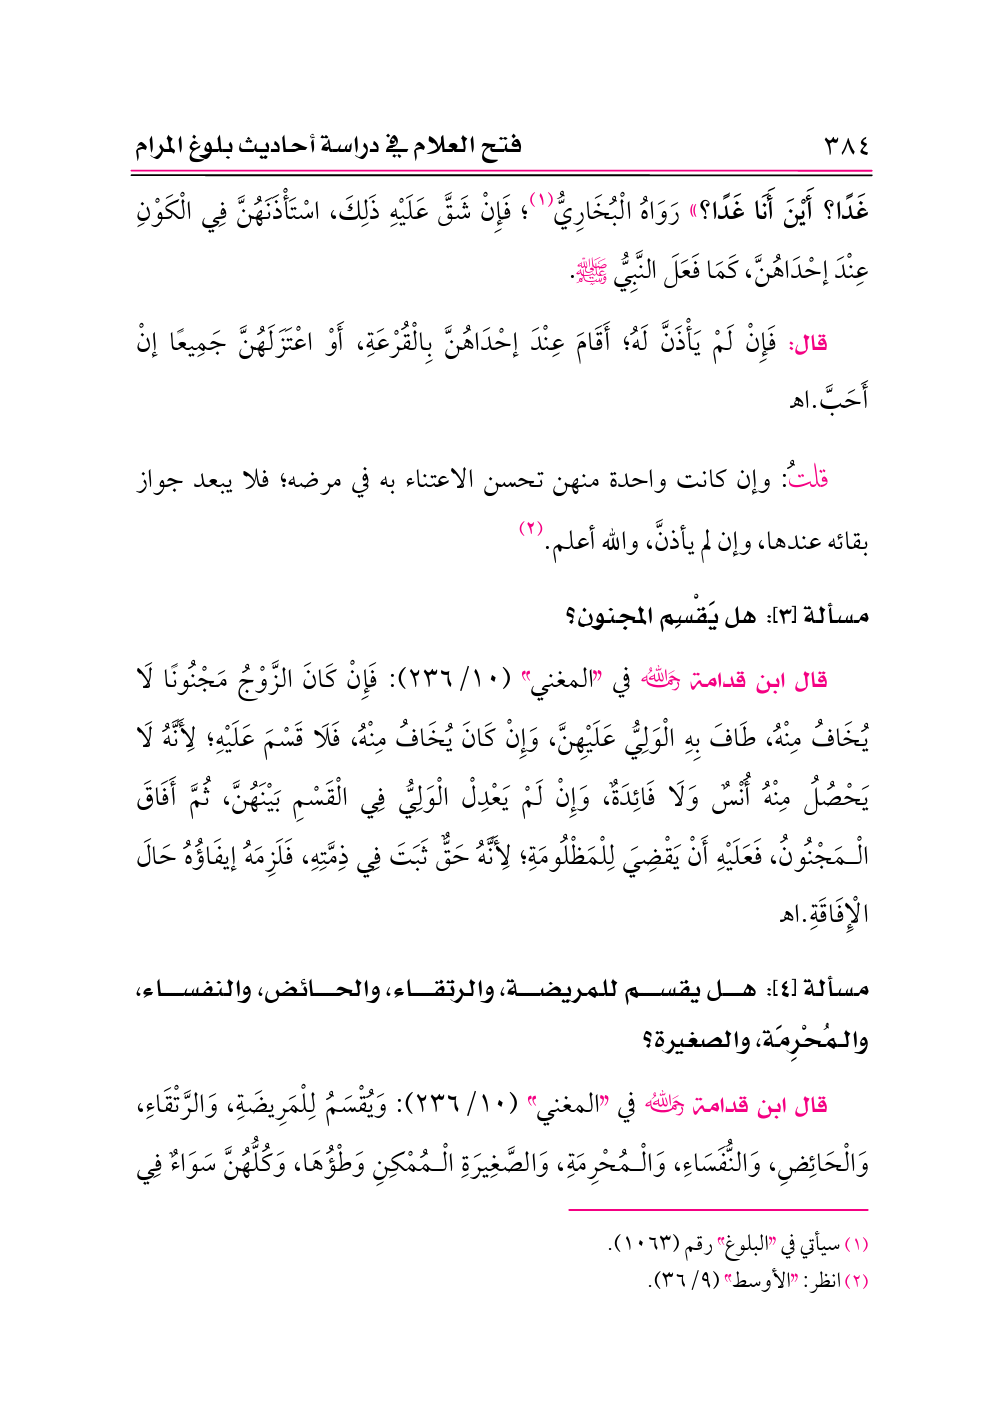 ٣٨٤ فتح العلام في دراسة أحاديث بلوغ المرام
غَدًا؟ أَيْنَ أَنَا غَدًا؟» رَوَاهُ الْبُخَارِيُّ(١)؛ فَإِنْ شَقَّ عَلَيْهِ ذَلِكَ، اسْتَأْذَنَهُنَّ فِي الْكَوْنِ
عِنْدَ إحْدَاهُنَّ، كَمَا فَعَلَ النَّبِيُّ ﷺ.
قال: فَإِنْ لَمْ يَأْذَنَّ لَهُ؛ أَقَامَ عِنْدَ إحْدَاهُنَّ بِالْقُرْعَةِ، أَوْ اعْتَزَلَهُنَّ جَمِيعًا إنْ
أَحَبَّ.اهـ
قلتُ: وإن كانت واحدة منهن تحسن الاعتناء به في مرضه؛ فلا يبعد جواز
بقائه عندها، وإن لم يأذنَّ، والله أعلم.(٢)
مسألة [٣]: هل يَقْسِم المجنون؟
قال ابن قدامة رحمه الله في «المغني» (١٠/ ٢٣٦): فَإِنْ كَانَ الزَّوْجُ مَجْنُونًا لَا
يُخَافُ مِنْهُ، طَافَ بِهِ الْوَلِيُّ عَلَيْهِنَّ، وَإِنْ كَانَ يُخَافُ مِنْهُ، فَلَا قَسْمَ عَلَيْهِ؛ لِأَنَّهُ لَا
يَحْصُلُ مِنْهُ أُنْسٌ وَلَا فَائِدَةٌ، وَإِنْ لَمْ يَعْدِلْ الْوَلِيُّ فِي الْقَسْمِ بَيْنَهُنَّ، ثُمَّ أَفَاقَ
الْـمَجْنُونُ، فَعَلَيْهِ أَنْ يَقْضِيَ لِلْمَظْلُومَةِ؛ لِأَنَّهُ حَقٌّ ثَبَتَ فِي ذِمَّتِهِ، فَلَزِمَهُ إيفَاؤُهُ حَالَ
الْإِفَاقَةِ.اهـ
مسألة [٤]: هـل يقسـم للمريضـة، والرتقـاء، والحـائض، والنفسـاء،
والـمُحْرِمَة، والصغيرة؟
قال ابن قدامة رحمه الله في «المغني» (١٠/ ٢٣٦): وَيُقْسَمُ لِلْمَرِيضَةِ، وَالرَّتْقَاءِ،
وَالْحَائِضِ، وَالنُّفَسَاءِ، وَالْـمُحْرِمَةِ، وَالصَّغِيرَةِ الْـمُمْكِنِ وَطْؤُهَا، وَكُلُّهُنَّ سَوَاءٌ فِي
(١) سيأتي في «البلوغ» رقم (١٠٦٣).
(٢) انظر: «الأوسط» (٩/ ٣٦).